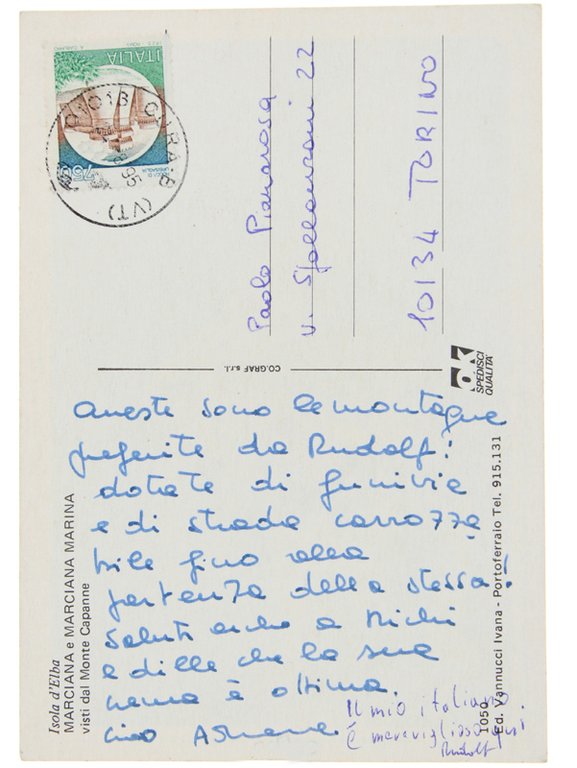 ITALIA
750
01018 CURA-B (VT)
95
Paolo Pianarosa
v. Spallanzani 22
10134 TORINO
CO.GRAF s.r.l.
OK
SPEDISCI
QUALITÀ
Isola d'Elba
MARCIANA e MARCIANA MARINA
visti dal Monte Capanne
1050
Ed. Vannucci Ivana - Portoferraio Tel. 915.131
Queste sono le montagne
preferite da Rudolf:
dotate di funivia
e di strada carrozza
bile fino alla
partenza della stessa!
Saluti anche a Michi
e dille che la sua
è ottima.
ciao
Il mio italiano
è meraviglioso
Rudolf